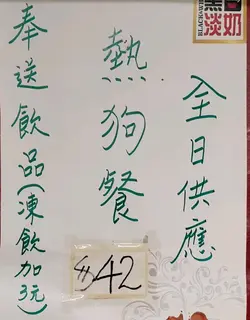 全日供應
熱狗餐
$42
奉送飲品(凍飲加3元)
淡奶